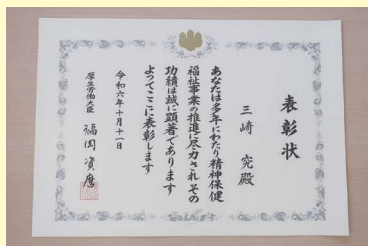 表彰状
三崎 究 殿
あなたは多年にわたり精神保健
福祉事業の推進に尽力されその
功績は誠に顕著であります
よってここに表彰します
令和六年十月十一日
厚生労働大臣 福岡資麿